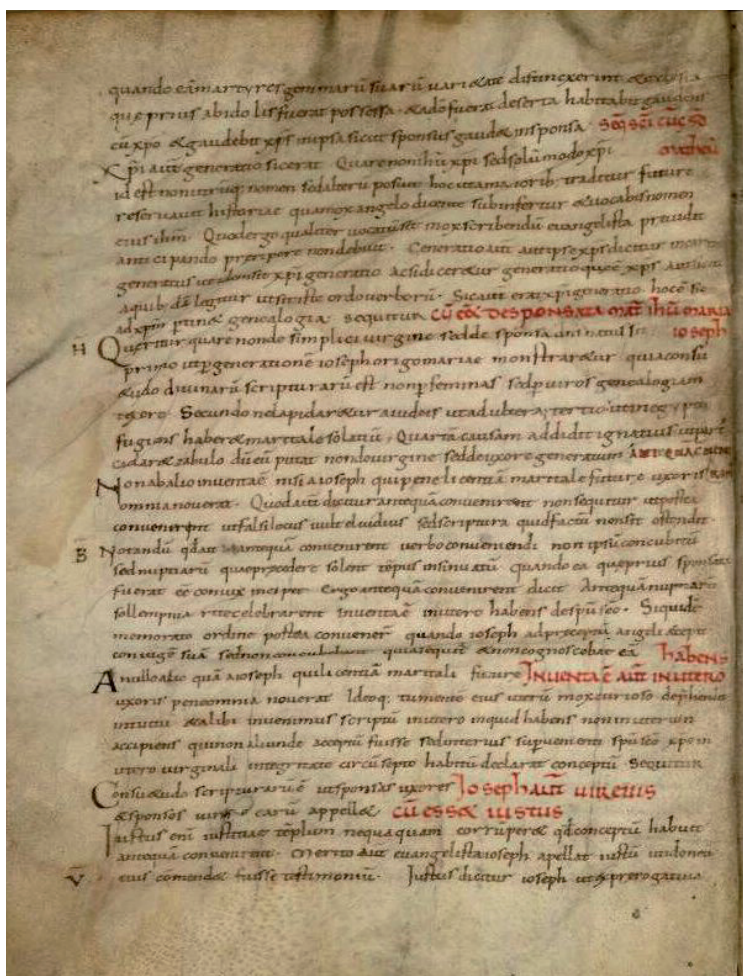 quando eā martyres gemmarū suarū uari&ate distinxerint &ecclesia
que prius abidolis fuerat possessa · &adō fuerat deserta habitabit gaudens
cū xpō &gaudebit xps inipsa sicut sponsus gaud& insponsa · SCĒ SCĪ CUC SD
Xpi aut̄ generatio sic erat · Quare non ihū xpi sed solū modo xpi
id est non utrūq; nomen sed alterū posuit hoc ita maiorib; traditur future
reseruauit historiae quam ox angelo dicente subinfertur &uocabis nomen
eius ihm · Quod ergo qualiter uocatus sit mox scribendū euangelista preuidit
anticipando preripere non debuit · Generatio aut̄
generatus xpi generatio acsi diceretur generatio quae xps
aquib; dā legitur ut sit iste ordo uerborū · Sic aut̄ erat xpi generatio hoc ē sic
ad xpm ptin& genealogia · sequitur CŪ EĒ& DESPONSATA MAT̄ IHŪ MARIA
H Queritur quare non de simplici uirgine sed de sponsa IOSEPH
primo ut p generationē ioseph origo mariae monstrar&ur quia consu
&udo diuinarū scripturarū est non p feminas sed p uiros genealogiam
texere · Secundo ne lapidar&ur a iudeis ut adultera; tertio ut in egypto
fugiens haber& maritale solatiū · Quartā causam addidit ignatius ut part
celar& zabulo dū eū putat non de uirgine sed de uxore generatum ANTEQUĀ CONVE
Non ab alio inuentaē nisi a ioseph qui pene licentiā maritale future uxoris
omnia nouerat · Quod aut̄ dicitur antequā conuenirent non sequitur ut postea
conuenirent ut falsi locus uult eluidius sed scriptura quid factū non sit ostendit
B Notandū qd ait antequā conuenirent uerbo conueniendi non ipsū concubitū
sed nuptiarū quae praecedere solent tēpus insinuatū quando ea quae prius sponsata
fuerat eē coniux incipit · Ergo antequā conuenirent dicit Antequā nuptiarū
sollempnia rite celebrarent inuentaē in utero habens de spū sco · Siquidē
memorato ordine postea conuener̄ quando ioseph ad preceptū angeli accepit
coniugē suā sed non concubuit quia sequit̄ &non cognoscebat eā HABENS
A nullo alio quā a ioseph qui licentiā maritali future INUENTA Ē AUT̄ IN UTERO
uxoris pene omnia nouerat Ideoq; tumente eius uterū mox curioso dephendit
intuitu &alibi inuenimus scriptū in utero inquid habens non in uterum
accipiens qui non aliunde acceptū fuisse sed interius supuenienti spū sco xpm in
utero uirginali integritate circūsepto habitū declarat conceptū Sequitur
Consu&udo scripturarū ē ut sponsas uxores IOSEPH AUT̄ UIR EIUS
&sponsos uiros appell& CŪ ESS& IUSTUS
Iustus enī iustitiae tēplum nequaquam corrupere qd conceptū habuit
antequā conuenirent · Merito aut̄ euangelista ioseph apellat iustū ut idoneū
V eius comend& fuisse testimoniū · Iustus dicitur ioseph ut ex prerogatiua